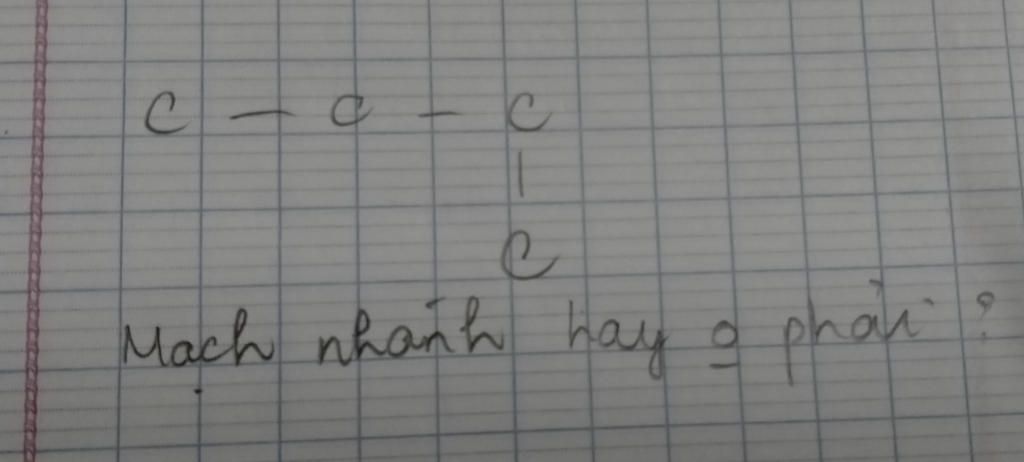 C — C — C
|
C
Mạch nhánh hay o phải ?